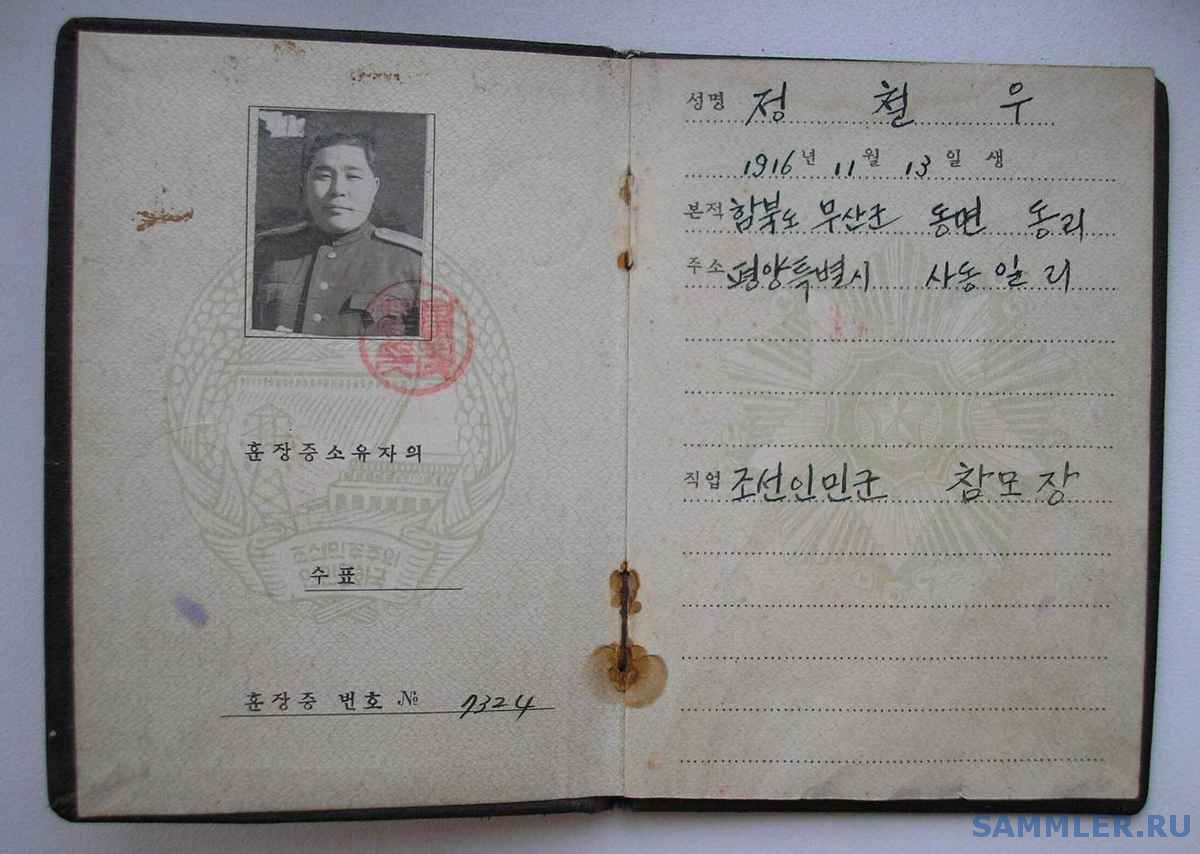 훈장증소유자의
수표
훈장증 번호 № 7324
성명 정 철 우
1916년 11월 13일 생
본적 함북도 무산군 동면 동리
주소 평양특별시 사동일리
직업 조선인민군 참모장
SAMMLER.RU